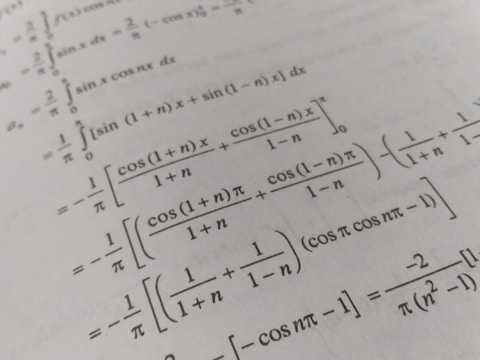 = 2/π ∫₀ f(x) cos n
= 2/π ∫₀^π sin x dx = 2/π (−cos x)₀^π =
aₙ = 2/π ∫₀^π sin x cos nx dx
= 1/π ∫₀^π [sin (1 + n) x + sin (1 − n) x] dx
= − 1/π [cos (1 + n) x / 1 + n + cos (1 − n) x / 1 − n]₀^π
= − 1/π [(cos (1 + n) π / 1 + n + cos (1 − n) π / 1 − n) − (1 / 1 + n + 1 / 1 −
= − 1/π [(1 / 1 + n + 1 / 1 − n) (cos π cos nπ − 1)]
[− cos nπ − 1] = −2 / π (n² − 1) [1